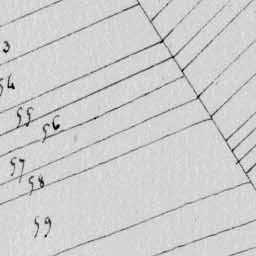 3
54
55
56
57
58
59